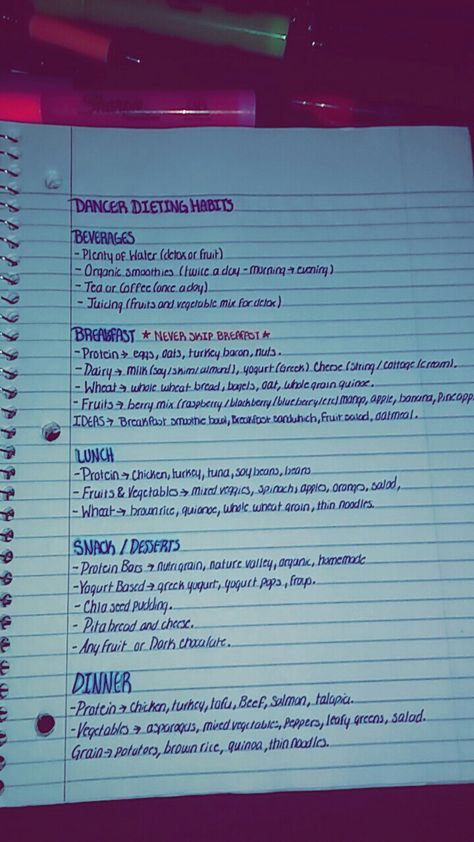 DANCER DIETING HABITS
BEVERAGES
- Plenty of Water (detox or fruit)
- Organic smoothies (twice a day - morning → evening)
- Tea or Coffee (once a day)
- Juicing (fruits and vegetable mix for detox)
BREAKFAST ★ NEVER SKIP BREAKFAST ★
- Protein → eggs, oats, turkey bacon, nuts.
- Dairy → milk (soy/skim/almond), yogurt (Greek) cheese (string/cottage/cream).
- Wheat → whole wheat bread, bagels, oat, whole grain quinoe.
- Fruits → berry mix (raspberry/blackberry/blueberry/etc) mango, apple, banana, Pineapp
IDEAS → Breakfast smoothie bowl, Breakfast sandwhich, Fruit salad, oatmeal.
LUNCH
- Protein → chicken, turkey, tuna, soy beans, beans
- Fruits & Vegetables → mixed veggies, spinach, apples, oranges, salad,
- Wheat → brown rice, quionoe, whole wheat grain, thin noodles.
SNACK / DESSERTS
- Protein Bars → nutrigrain, nature valley, organic, homemade
- Yogurt Based → greek yogurt, yogurt pops, froyo.
- Chia seed pudding.
- Pita bread and cheese.
- Any fruit or Dark chocolate.
DINNER
- Protein → chicken, turkey, tofu, Beef, Salmon, talapia.
- Vegetables → asparagus, mixed vegetables, Peppers, leafy greens, salad.
Grain → potatoes, brown rice, quinoa, thin noodles.
Sharpie